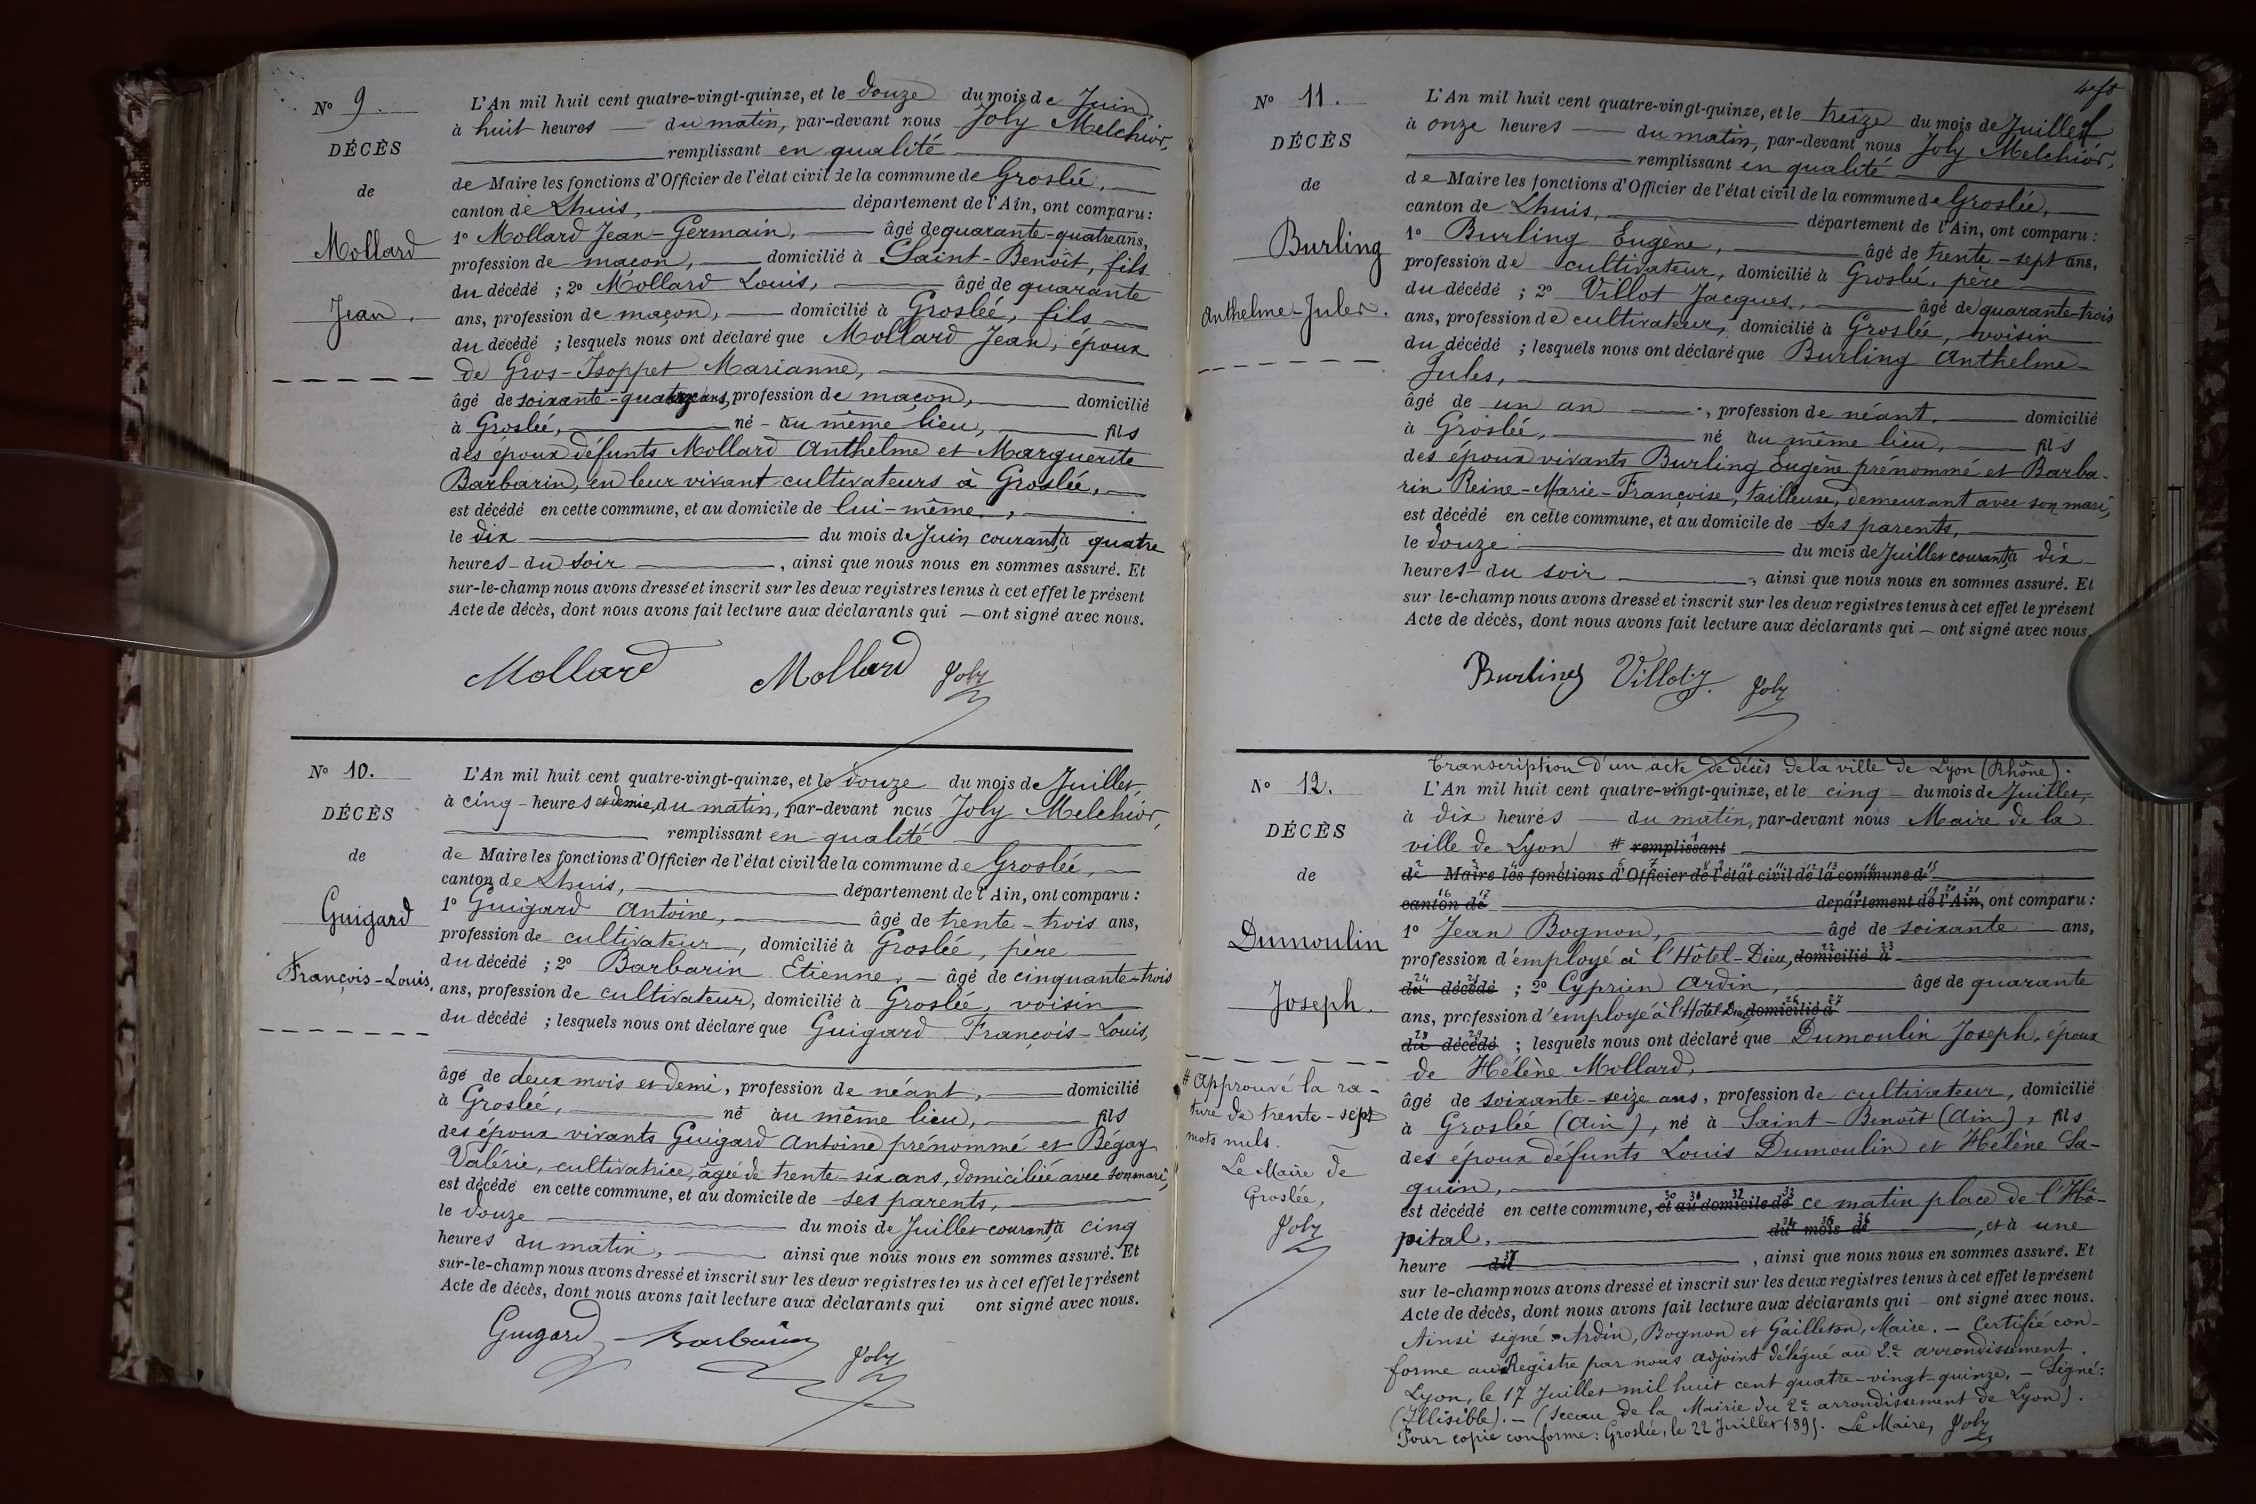 No 9.
DÉCÈS
de
Mollard
Jean.
L'An mil huit cent quatre-vingt-quinze, et le douze du mois de Juin
à huit heures du matin, par-devant nous Joly Melchior,
remplissant en qualité
de Maire les fonctions d'Officier de l'état civil de la commune de Groslée,
canton de Lhuis, département de l'Ain, ont comparu :
1o Mollard Jean-Germain, âgé de quarante-quatre ans,
profession de maçon, domicilié à Saint-Benoît, fils
du décédé ; 2o Mollard Louis, âgé de quarante
ans, profession de maçon, domicilié à Groslée, fils
du décédé ; lesquels nous ont déclaré que Mollard Jean, époux
de Gros-Isoppet Marianne,
âgé de soixante-quatorze ans, profession de maçon, domicilié
à Groslée, né au même lieu, fils
des époux défunts Mollard Anthelme et Marguerite
Barbarin, en leur vivant cultivateurs à Groslée,
est décédé en cette commune, et au domicile de lui-même,
le dix du mois de Juin courant, à quatre
heures du soir, ainsi que nous nous en sommes assuré. Et
sur-le-champ nous avons dressé et inscrit sur les deux registres tenus à cet effet le présent
Acte de décès, dont nous avons fait lecture aux déclarants qui — ont signé avec nous.
Mollard Mollard Joly
No 10.
DÉCÈS
de
Guigard
François-Louis,
L'An mil huit cent quatre-vingt-quinze, et le douze du mois de Juillet,
à cinq heures et demie, du matin, par-devant nous Joly Melchior,
remplissant en qualité
de Maire les fonctions d'Officier de l'état civil de la commune de Groslée,
canton de Lhuis, département de l'Ain, ont comparu :
1o Guigard Antoine, âgé de trente-trois ans,
profession de cultivateur, domicilié à Groslée, père
du décédé ; 2o Barbarin Etienne, âgé de cinquante-trois
ans, profession de cultivateur, domicilié à Groslée, voisin
du décédé ; lesquels nous ont déclaré que Guigard François-Louis,
âgé de deux mois et demi, profession de néant, domicilié
à Groslée, né au même lieu, fils
des époux vivants Guigard Antoine prénommé et Bégay
Valérie, cultivatrice, âgée de trente-six ans, domiciliée avec son mari,
est décédé en cette commune, et au domicile de ses parents,
le douze du mois de Juillet courant, à cinq
heures du matin, ainsi que nous nous en sommes assuré. Et
sur-le-champ nous avons dressé et inscrit sur les deux registres tenus à cet effet le présent
Acte de décès, dont nous avons fait lecture aux déclarants qui ont signé avec nous.
Guigard Barbarin Joly
No 11.
DÉCÈS
de
Burling
Anthelme-Jules.
L'An mil huit cent quatre-vingt-quinze, et le treize du mois de Juillet
à onze heures du matin, par-devant nous Joly Melchior,
remplissant en qualité
de Maire les fonctions d'Officier de l'état civil de la commune de Groslée,
canton de Lhuis, département de l'Ain, ont comparu :
1o Burling Eugène, âgé de trente-sept ans,
profession de cultivateur, domicilié à Groslée, père
du décédé ; 2o Villot Jacques, âgé de quarante-trois
ans, profession de cultivateur, domicilié à Groslée, voisin
du décédé ; lesquels nous ont déclaré que Burling Anthelme-
Jules,
âgé de un an, profession de néant, domicilié
à Groslée, né au même lieu, fils
des époux vivants Burling Eugène prénommé et Barba-
rin Reine-Marie-Françoise, tailleuse, demeurant avec son mari,
est décédé en cette commune, et au domicile de ses parents,
le douze du mois de Juillet courant, à dix
heures du soir, ainsi que nous nous en sommes assuré. Et
sur-le-champ nous avons dressé et inscrit sur les deux registres tenus à cet effet le présent
Acte de décès, dont nous avons fait lecture aux déclarants qui — ont signé avec nous.
Burling Villot J Joly
No 12.
DÉCÈS
de
Dumoulin
Joseph.
# Approuvé la ra-
ture de trente-sept
mots nuls.
Le Maire de
Groslée,
Joly
Transcription d'un acte de décès de la ville de Lyon (Rhône).
L'An mil huit cent quatre-vingt-quinze, et le cinq du mois de Juillet,
à dix heures du matin, par-devant nous Maire de la
ville de Lyon # remplissant
de Maire les fonctions d'Officier de l'état civil de la commune de
canton de département de l'Ain, ont comparu :
1o Jean Bognon, âgé de soixante ans,
profession d'employé à l'Hôtel-Dieu, domicilié à
du décédé ; 2o Cyprien Ardin, âgé de quarante
ans, profession d'employé à l'Hôtel Dieu, domicilié à
du décédé ; lesquels nous ont déclaré que Dumoulin Joseph, époux
de Hélène Mollard,
âgé de soixante-seize ans, profession de cultivateur, domicilié
à Groslée (Ain), né à Saint-Benoît (Ain), fils
des époux défunts Louis Dumoulin et Hélène Sa-
quin,
est décédé en cette commune, et au domicile de ce matin place de l'Hô-
pital, du mois de, et à une
heure du, ainsi que nous nous en sommes assuré. Et
sur le-champ nous avons dressé et inscrit sur les deux registres tenus à cet effet le présent
Acte de décès, dont nous avons fait lecture aux déclarants qui — ont signé avec nous.
Ainsi signé Ardin, Bognon et Gailleton, Maire. — Certifié con-
forme au Registre par nous adjoint délégué au 2e arrondissement.
Lyon, le 17 Juillet mil huit cent quatre-vingt-quinze. — Signé :
(Illisible). — (Sceau de la Mairie du 2e arrondissement de Lyon).
Pour copie conforme : Groslée, le 22 Juillet 1895. Le Maire, Joly